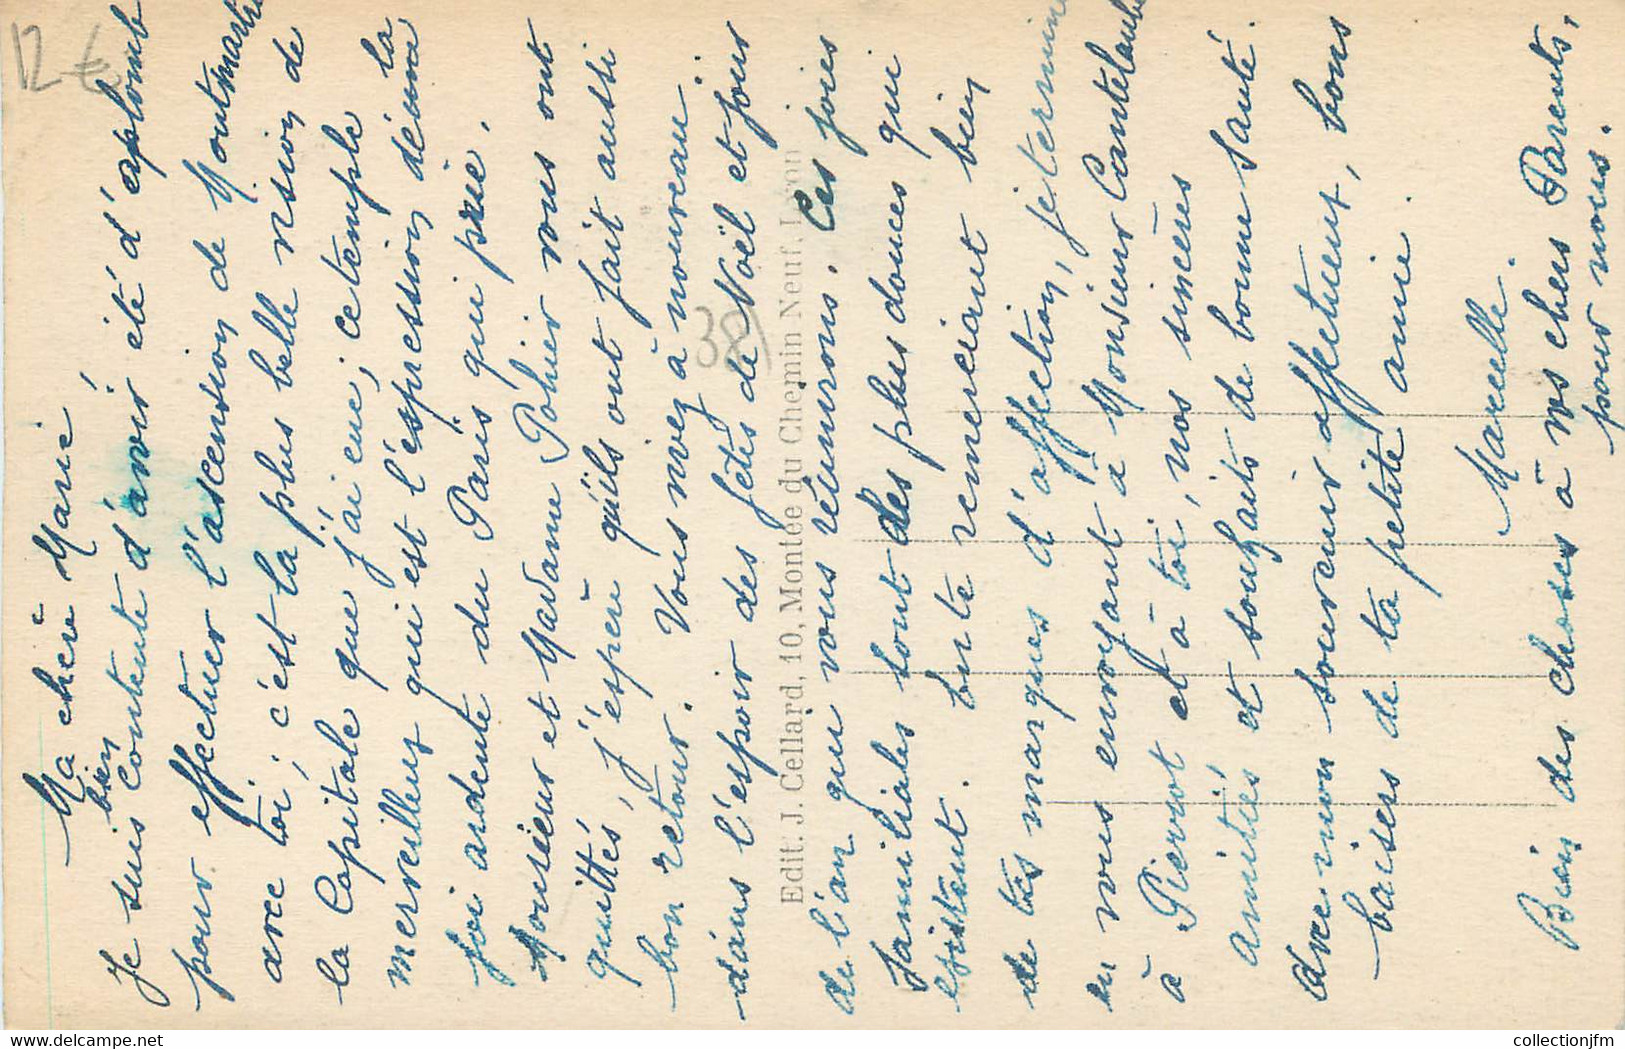 Ma chère Marie
bien
Je suis contente d'avoir été d'aplomb
pour effectuer l'ascension de Montmartre
avec toi ; c'est la plus belle vision de
la Capitale que j'ai eue ; ce temple
la
merveilleux qui est l'expression de
foi ardente du Paris qui prie.
Monsieur et Madame Pohier vous ont
quittés, j'espère qu'ils ont fait aussi
bon retour. Vous vivez à nouveau
dans l'espoir des fêtes de Noël et jour
de l'an qui vous réunirons. Ces joies
familiales sont des plus douces qui
existent. En te remerciant bien
de tes marques d'affection, je termine
en vous envoyant à Monsieur Cantelaube
à Pierrot et à toi, nos sincères
amitiés et souhaits de bonne santé.
Avec mon souvenir affectueux, bons
baisers de ta petite amie.
Marcelle.
Bien des choses à vos chers Parents,
pour nous.
Edit. J. Cellard, 10, Montée du Chemin Neuf, Lyon
12 €
38
www.delcampe.net
collectionjfm